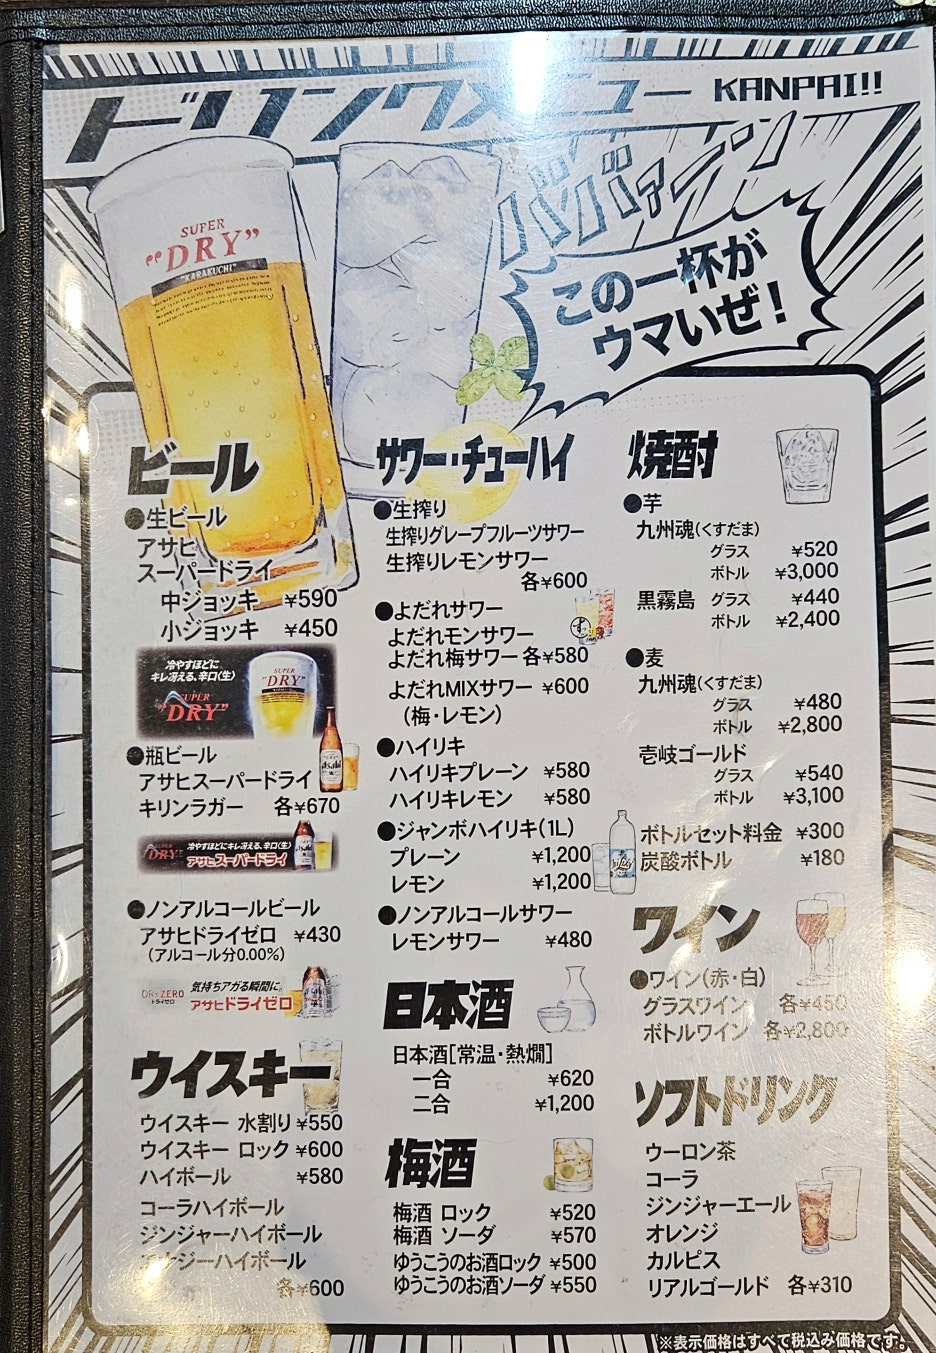 ドリンクメニュー KANPAI!!
ババァーン
この一杯が
ウマいぜ!
SUPER
"DRY"
"KARAKUCHI"
ビール
●生ビール
アサヒ
スーパードライ
中ジョッキ ¥590
小ジョッキ ¥450
冷やすほどに
キレ冴える、辛口(生)
SUPER
"DRY"
SUPER
"DRY"
●瓶ビール
アサヒスーパードライ
キリンラガー 各¥670
Asahi
SUPER
"DRY"
冷やすほどにキレ冴える、辛口(生)
アサヒスーパードライ
●ノンアルコールビール
アサヒドライゼロ ¥430
(アルコール分0.00%)
DRYZERO
ドライゼロ
気持ちアガる瞬間に。
アサヒドライゼロ
ウイスキー
ウイスキー 水割り ¥550
ウイスキー ロック ¥600
ハイボール ¥580
コーラハイボール
ジンジャーハイボール
ジーハイボール
各¥600
サワー・チューハイ
●生搾り
生搾りグレープフルーツサワー
生搾りレモンサワー
各¥600
●よだれサワー
よだれモンサワー
よだれ梅サワー 各¥580
よだれMIXサワー ¥600
(梅・レモン)
●ハイリキ
ハイリキプレーン ¥580
ハイリキレモン ¥580
●ジャンボハイリキ(1L)
プレーン ¥1,200
レモン ¥1,200
●ノンアルコールサワー
レモンサワー ¥480
日本酒
日本酒[常温・熱燗]
一合 ¥620
二合 ¥1,200
梅酒
梅酒 ロック ¥520
梅酒 ソーダ ¥570
ゆうこうのお酒ロック ¥500
ゆうこうのお酒ソーダ ¥550
焼酎
●芋
九州魂(くすだま)
グラス ¥520
ボトル ¥3,000
黒霧島 グラス ¥440
ボトル ¥2,400
●麦
九州魂(くすだま)
グラス ¥480
ボトル ¥2,800
壱岐ゴールド
グラス ¥540
ボトル ¥3,100
ボトルセット料金 ¥300
炭酸ボトル ¥180
ワイン
●ワイン(赤・白)
グラスワイン 各¥450
ボトルワイン 各¥2,800
ソフトドリンク
ウーロン茶
コーラ
ジンジャーエール
オレンジ
カルピス
リアルゴールド 各¥310
※表示価格はすべて税込み価格です。